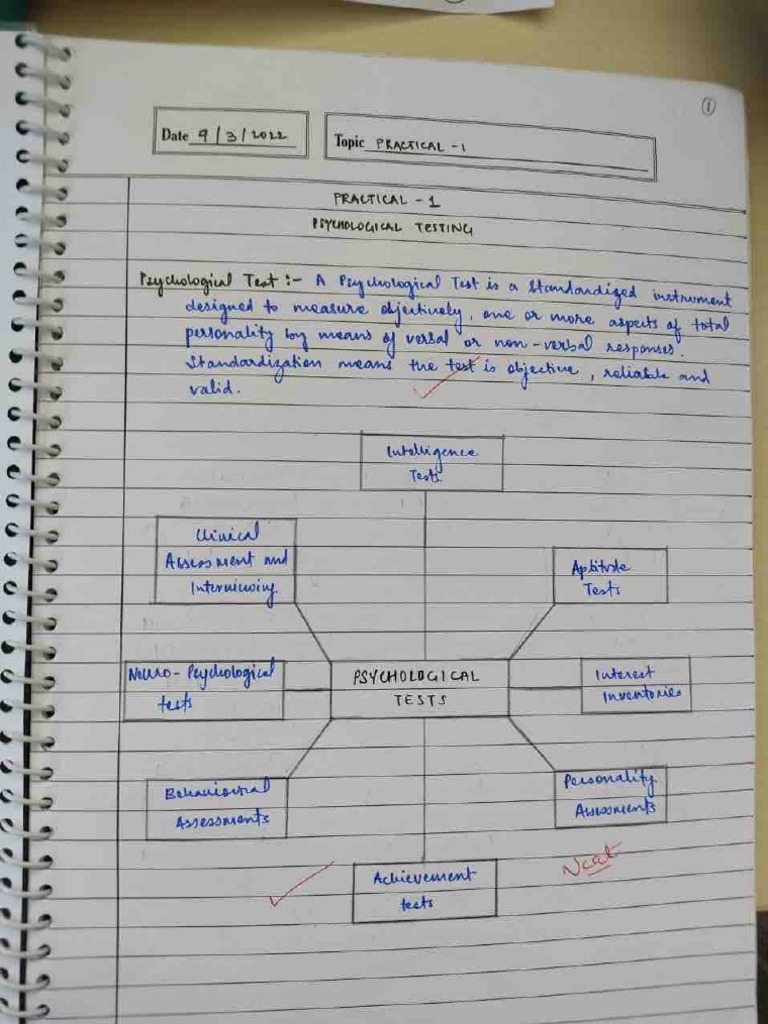 ①
Date 9/3/2022
Topic PRACTICAL - 1
PRACTICAL - 1
PSYCHOLOGICAL TESTING
Psychological Test :- A Psychological Test is a Standardized instrument
designed to measure objectively, one or more aspects of total
personality by means of verbal or non-verbal responses.
Standardization means the test is objective, reliable and
valid.
Intelligence
Tests
Clinical
Assessment and
Interviewing
Aptitude
Tests
Neuro-Psychological
tests
PSYCHOLOGICAL
TESTS
Interest
Inventories
Behavioural
Assessments
Personality
Assessments
Achievement
tests
Neat